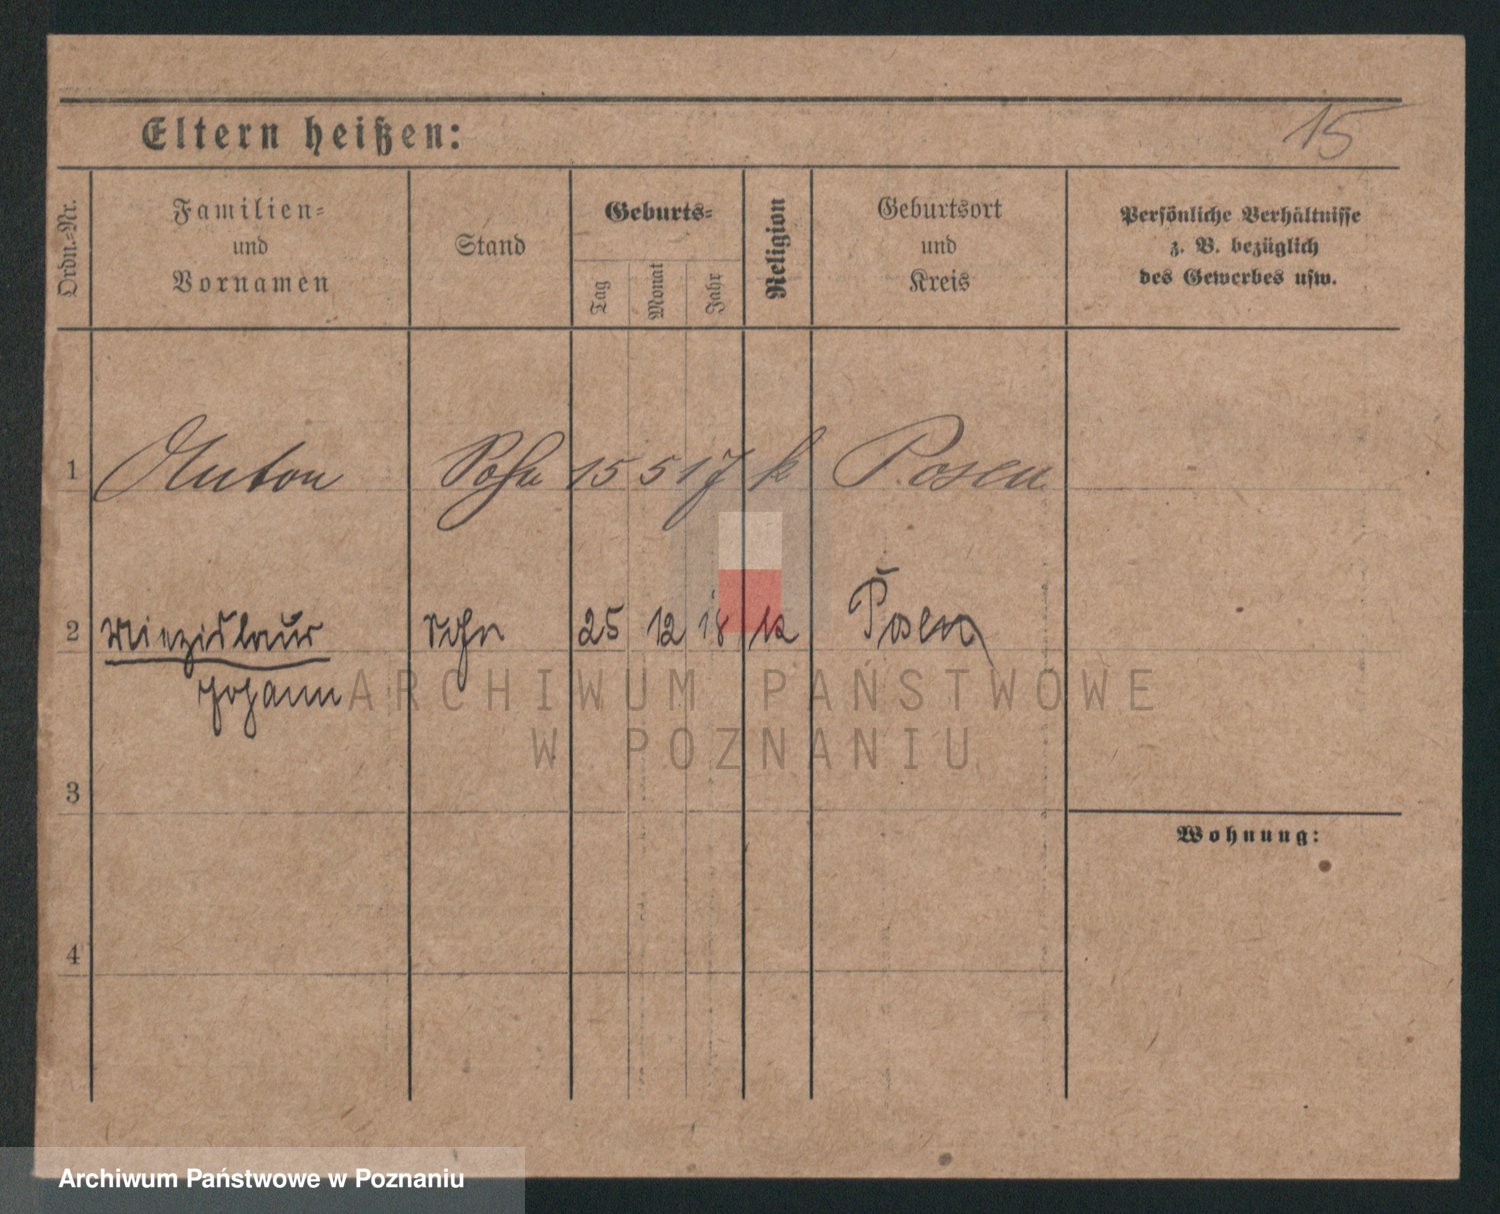 15
Eltern heißen:
Ordn.-Nr.
Familien-
und
Vornamen
Stand
Geburts-
Tag
Monat
Jahr
Religion
Geburtsort
und
Kreis
Persönliche Verhältnisse
z. B. bezüglich
des Gewerbes usw.
1 Anton Sohn 15 5 17 k Posen
2 Miezislaus Sohn 25 12 18 k Posen
Johann
ARCHIWUM PAŃSTWOWE
W POZNANIU
3
Wohnung:
4
Archiwum Państwowe w Poznaniu